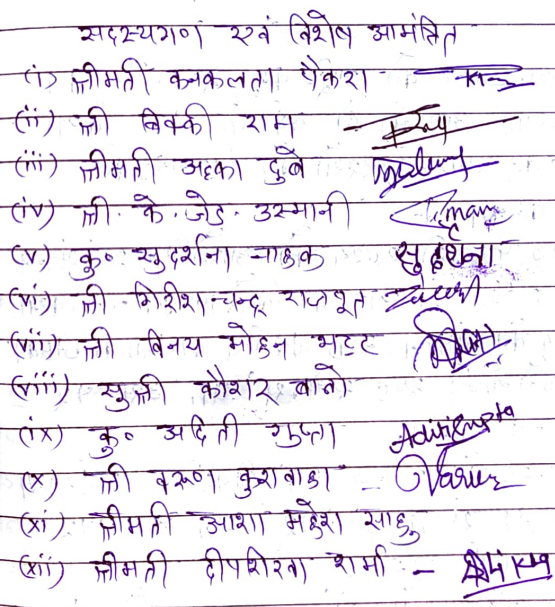 सदस्यगण एवं विशेष आमंत्रित
(i) श्रीमती कनकलता पैकरा
(ii) श्री विक्की राम
(iii) श्रीमती अल्का दुबे
(iv) श्री के. जेड. उस्मानी
(v) कु० सुदर्शना नाहक सुदर्शना
(vi) श्री गिरीश चन्द्र राजपूत
(vii) श्री विनय मोहन भट्ट
(viii) सुश्री कौशर बानो
(ix) कु० अदिती गुप्ता Aditi Gupta
(x) श्री वरूण कुशवाहा - Varun
(xi) श्रीमती आशा महेश साहू
(xii) श्रीमती दीपशिखा शर्मा -